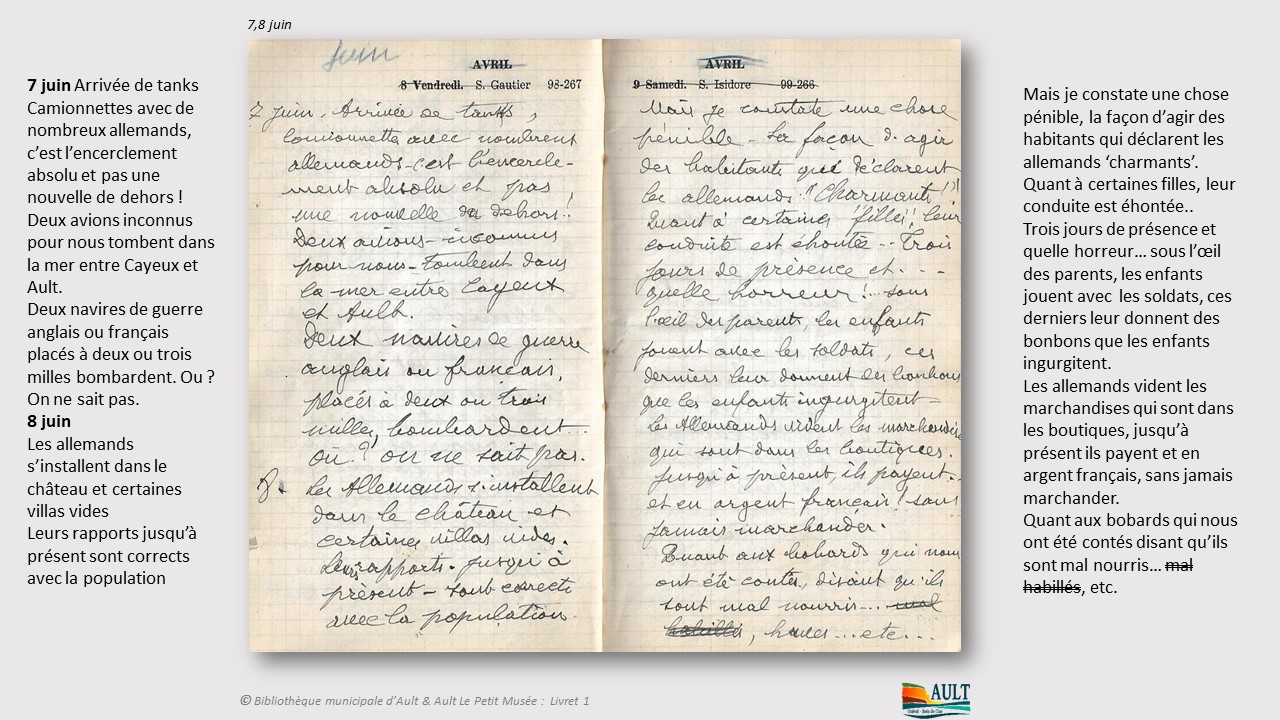 7,8 juin
7 juin Arrivée de tanks
Camionnettes avec de
nombreux allemands,
c’est l’encerclement
absolu et pas une
nouvelle de dehors !
Deux avions inconnus
pour nous tombent dans
la mer entre Cayeux et
Ault.
Deux navires de guerre
anglais ou français
placés à deux ou trois
milles bombardent. Ou ?
On ne sait pas.
8 juin
Les allemands
s’installent dans le
château et certaines
villas vides
Leurs rapports jusqu’à
présent sont corrects
avec la population
Juin
AVRIL
8 Vendredi. S. Gautier 98-267
7 juin. Arrivée de tanks,
camionnette avec nombreux
allemands - c'est l'encercle-
ment absolu et pas
une nouvelle du dehors!!
Deux avions - inconnus
pour nous - tombent dans
la mer entre Cayeux
et Ault.
Deux navires de guerre
anglais ou français,
placés à deux ou trois
milles, bombardent...
où.? on ne sait pas.
8. Les Allemands s'installent
dans le château et
certaines villas vides.
Leurs rapports - jusqu'à
présent - sont corrects
avec la population.
AVRIL
9 Samedi. S. Isidore 99-266
Mais je constate une chose
pénible - La façon d'agir
des habitants qui déclarent
les allemands "Charmants"!!
Quant à certaines "filles", leur
conduite est éhontée -- Trois
jours de présence et . - -
quelle horreur!.. sous
l'œil des parents, les enfants
jouent avec les soldats, ces
derniers leur donnent des bonbons
que les enfants ingurgitent -
les Allemands vident les marchandises
qui sont dans les boutiques.
Jusqu'à présent, ils payent.
et en argent français! sans
jamais marchander.
Quant aux bobards qui nous
ont été contés, disant qu'ils
sont mal nourris... mal
habillés, haves ... etc...
Mais je constate une chose
pénible, la façon d’agir des
habitants qui déclarent les
allemands ‘charmants’.
Quant à certaines filles, leur
conduite est éhontée..
Trois jours de présence et
quelle horreur… sous l’œil
des parents, les enfants
jouent avec les soldats, ces
derniers leur donnent des
bonbons que les enfants
ingurgitent.
Les allemands vident les
marchandises qui sont dans
les boutiques, jusqu’à
présent ils payent et en
argent français, sans jamais
marchander.
Quant aux bobards qui nous
ont été contés disant qu’ils
sont mal nourris… mal
habillés, etc.
© Bibliothèque municipale d’Ault & Ault Le Petit Musée : Livret 1
AULT